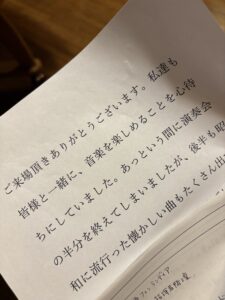 ご来場頂きありがとうございます。私達も
皆様と一緒に、音楽を楽しめることを心待
ちにしていました。あっという間に演奏会
の半分を終えてしまいましたが、後半も昭
和に流行った懐かしい曲もたくさん出
フィンランディア